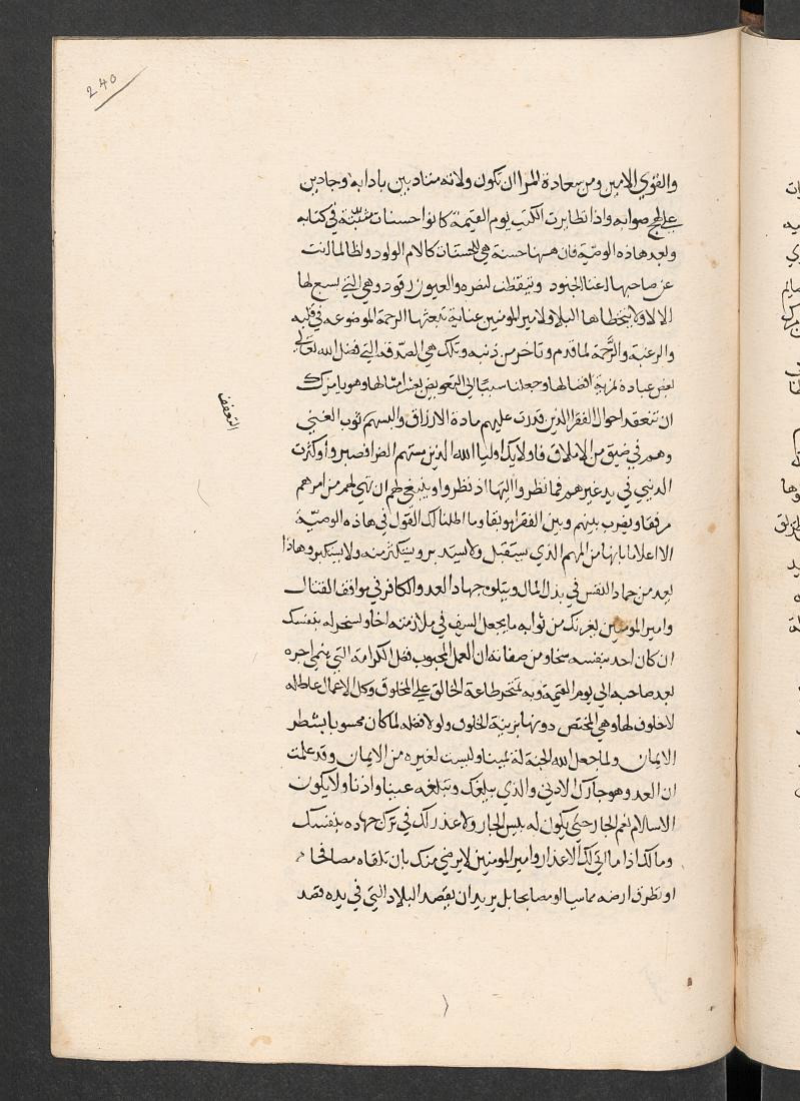 240
والقوي الامين ومن سعادة المرا ان تكون ولاته متادبين بادابه وجادين
علي نهج صوابه واذا تطايرت الكتب يوم القيمة كانوا حسنات مثبتة في كتابه
وبعد هاذه الوصية فان هيهنا حسنة هي للحسنات كالام الولود ولطالما اغنت
عن صاحبها اغنا الجنود وتيقظت لنصره والعيون رقود وهي التي يسبغ لها
الالا ولا يتخطاها البلا ولامير المومنين عناية تبعثها الرحمة الموضوعه في قلبه
والرغبة والرحمة لما تقدم وتاخر من ذنبه وتلك هي الصدقة التي فضل الله تعالي
بعض عباده لمزية افضالها وجعلنا سببا الي التعويض بعشر امثالها وهو يامرك
ان تتفقد احوال الفقرا الذين قدرت عليهم مادة الارزاق والبسهم ثوب الغني
التعفف
وهم في ضيق من الاملاق فاولايك اوليا الله الذين مستهم الضرا فصبروا وكثرت
الدنيي في يد غيرهم فما نظروا اليها اذ نظروا وينبغي لهم ان تهي لهم من امرهم
مرفقا ويضرب بينهم وبين الفقر موبقا وما اطلنا لك القول في هاذه الوصية
الا اعلاما بانها من المهم الذي يستقبل ولا يستدبر ويستكثر منه ولا يستكبر وهاذا
يعد من جهاد النفس في بذل المال ويتلوه جهاد العدو الكافر في مواقف القتال
وامير المومنين يعرفك من ثوابه ما يجعل السيف في ملازمته اخا وتسخر له بنفسك
ان كان احد بنفسه سخا ومن صفاته ان العمل المحبوب بفضل الكرامة التي ينمي اجره
بعد صاحبه الي يوم القيمة وبه تمتحن طاعة الخالق علي المخلوق وكل الاعمال عاطله
لا خلوق لها وهي المختص دونها بزينة الخلوق ولولا فضله لما كان محسوبا بشطر
الايمان ولما جعل الله الجنة له ثمنا وليست لغيره من الايمان وقد علمت
ان العدو هو جارك الادني والذي يبلغك وتبلغه عينا واذنا ولا يكون
الاسلام نعم الجار حتي يكون له بيس الجار ولا عذر لك في ترك جهاده بنفسك
ومالك اذا ما اتي لك الاعذار وامير المومنين لا يرضي منك بان تلقاه مصافحا
او تطرق ارضه مماسيا او مصابحا بل يريد ان يقصد البلاد التي في يده قصد